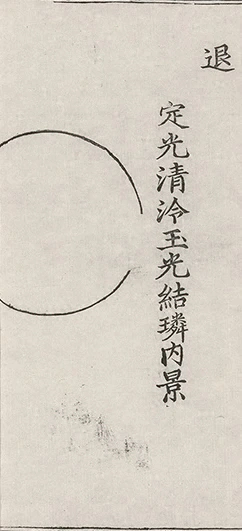 退
定光清泠玉光結璘内景